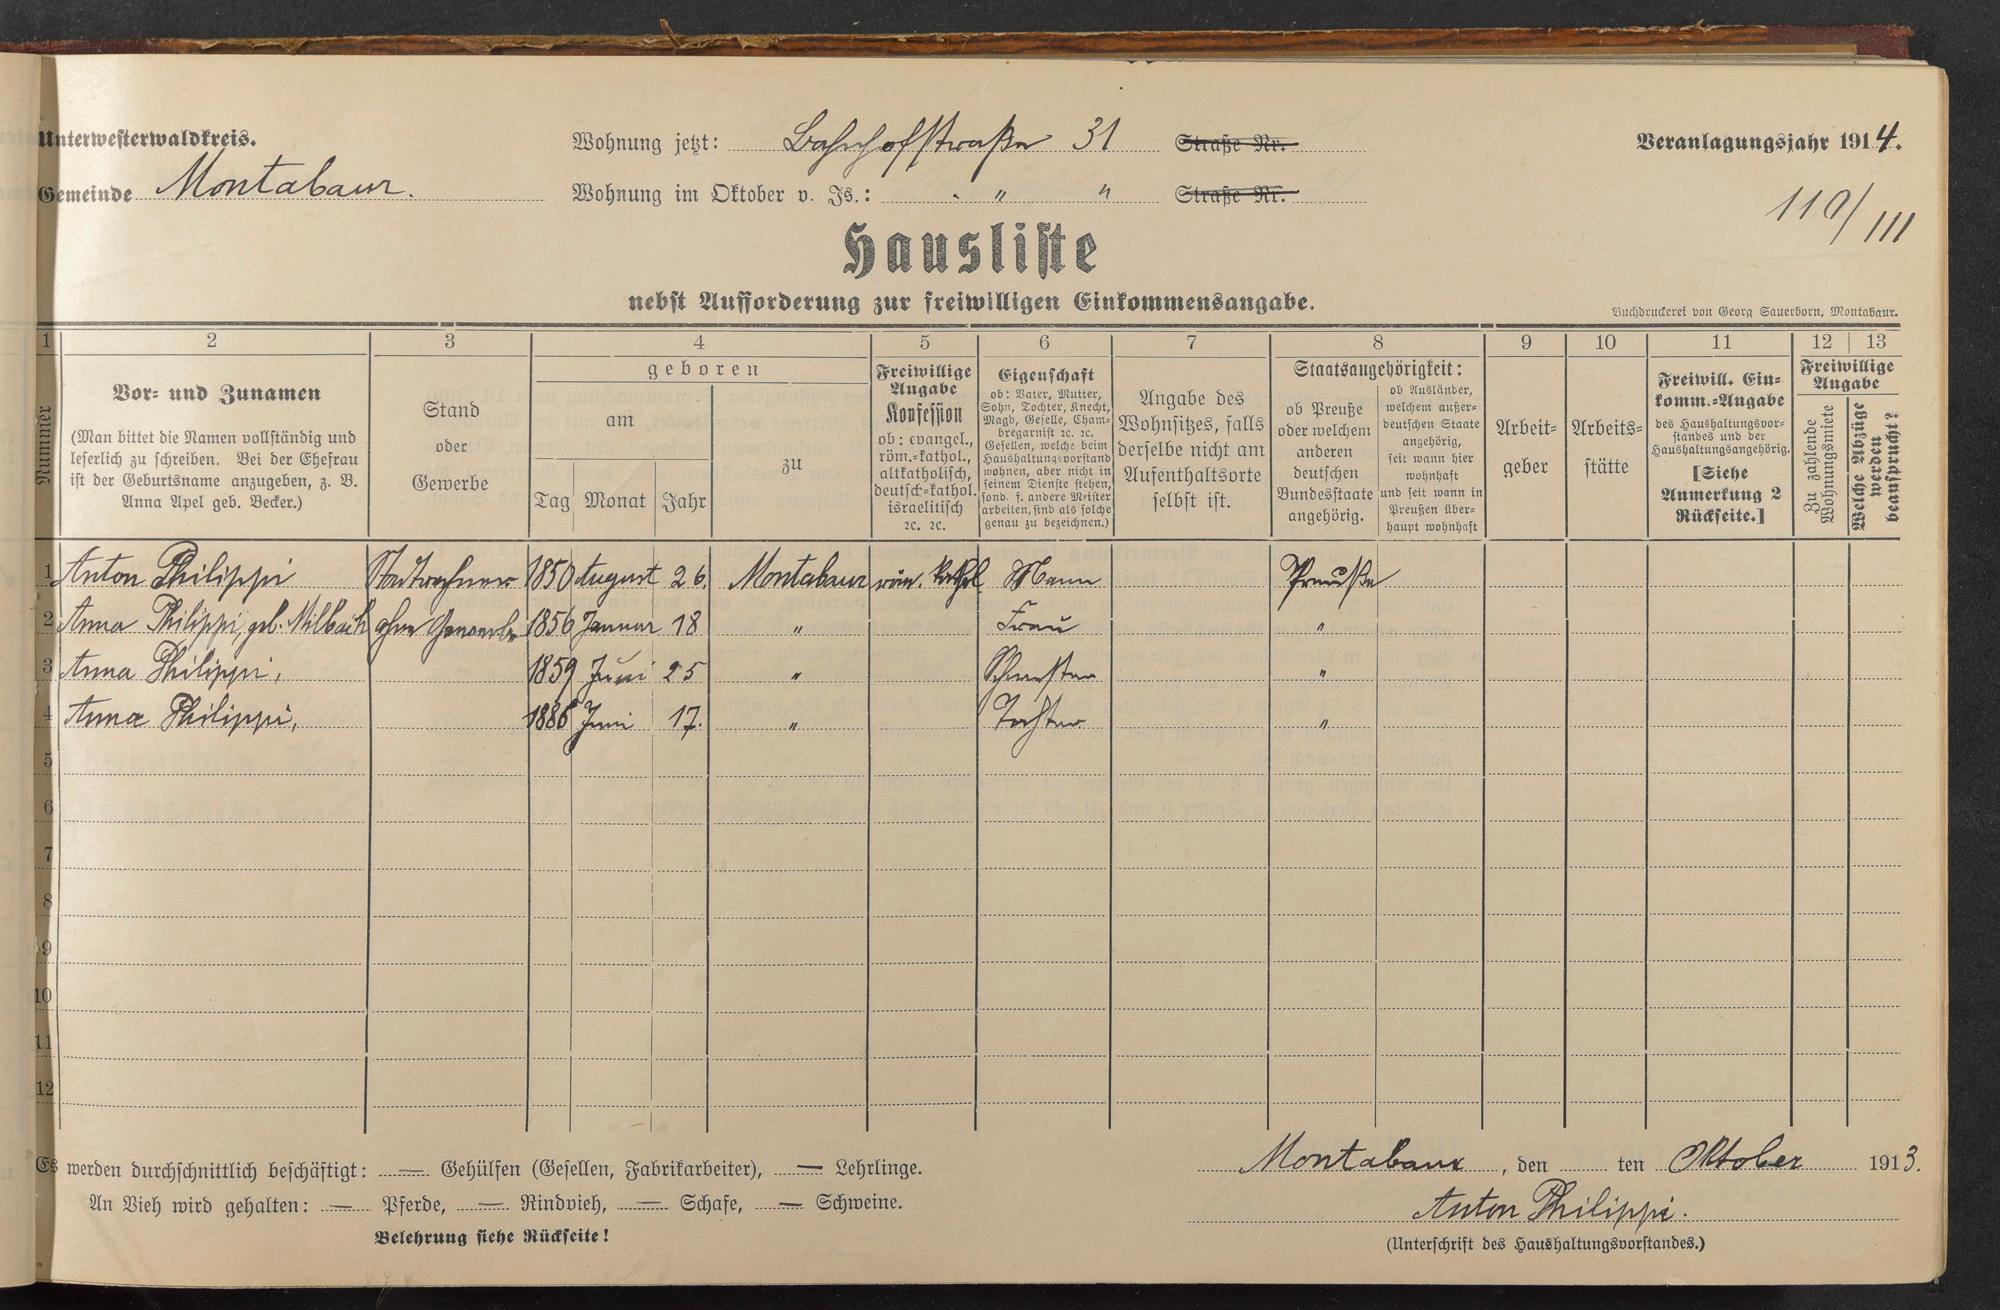 Unterwesterwaldkreis.
Gemeinde Montabaur.
Wohnung jetzt: Bahnhofstraße 31 Straße Nr.
Wohnung im Oktober v. Js.: " " Straße Nr.
Veranlagungsjahr 1914.
110/111
Hausliste
nebst Aufforderung zur freiwilligen Einkommensangabe.
Buchdruckerei von Georg Sauerborn, Montabaur.
1 2 3 4 5 6 7 8 9 10 11 12 13
Nummer
Vor- und Zunamen
(Man bittet die Namen vollständig und
leserlich zu schreiben. Bei der Ehefrau
ist der Geburtsname anzugeben, z. B.
Anna Apel geb. Becker.)
Stand
oder
Gewerbe
geboren
am
Tag Monat Jahr
zu
Freiwillige
Angabe
Konfession
ob: evangel.,
röm.-kathol.,
altkatholisch,
deutsch-kathol.
israelitisch
ꝛc. ꝛc.
Eigenschaft
ob: Vater, Mutter,
Sohn, Tochter, Knecht,
Magd, Geselle, Cham-
bregarnist ꝛc. ꝛc.
Gesellen, welche beim
Haushaltungsvorstand
wohnen, aber nicht in
seinem Dienste stehen,
sond. f. andere Meister
arbeiten, sind als solche
genau zu bezeichnen.)
Angabe des
Wohnsitzes, falls
derselbe nicht am
Aufenthaltsorte
selbst ist.
Staatsangehörigkeit:
ob Preuße
oder welchem
anderen
deutschen
Bundesstaate
angehörig.
ob Ausländer,
welchem außer-
deutschen Staate
angehörig,
seit wann hier
wohnhaft
und seit wann in
Preußen über-
haupt wohnhaft
Arbeit-
geber
Arbeits-
stätte
Freiwill. Ein-
komm.-Angabe
des Haushaltungsvor-
standes und der
Haushaltungsangehörig.
[Siehe
Anmerkung 2
Rückseite.]
Freiwillige
Angabe
Zu zahlende
Wohnungsmiete
Welche Abzüge
werden
beansprucht?
1 Anton Philippi Stadtrechner 1850 August 26. Montabaur röm. kathol Mann Preuße
2 Anna Philippi, geb. Milbach ohne Gewerbe 1856 Januar 18 " Frau "
3 Anna Philippi, 1859 Juni 25 " Schwester "
4 Anna Philippi, 1886 Juni 17. " Tochter "
5
6
7
8
9
10
11
12
Es werden durchschnittlich beschäftigt: — Gehülfen (Gesellen, Fabrikarbeiter), — Lehrlinge.
An Vieh wird gehalten: — Pferde, — Rindvieh, — Schafe, — Schweine.
Belehrung siehe Rückseite!
Montabaur, den ten Oktober 1913.
Anton Philippi.
(Unterschrift des Haushaltungsvorstandes.)